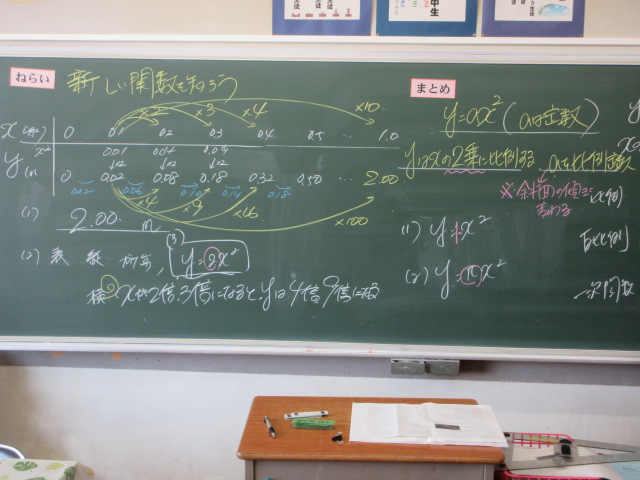 ねらい 新しい関数を知ろう
×2 ×3 ×4 ×10
x(秒) 0 0.1 0.2 0.3 0.4 0.5 … 1.0
x² 0.01 0.04 0.09
↓×2 ↓×2 ↓×2
y(m) 0 0.02 0.08 0.18 0.32 0.50 … 2.00
0.02 0.06 0.10 0.14 0.18
×4 ×9 ×16 ×100
(1) 2.00 m
(2) 表 縦 (3) y=2x²
横 xが2倍,3倍になると,yは4倍9倍になる
まとめ
y=ax² (aは定数)
yはxの2乗に比例する aを比例定数
※斜面の傾きで
変わる
(1) y=x²
(2) y=πx²
比例
反比例
一次関数